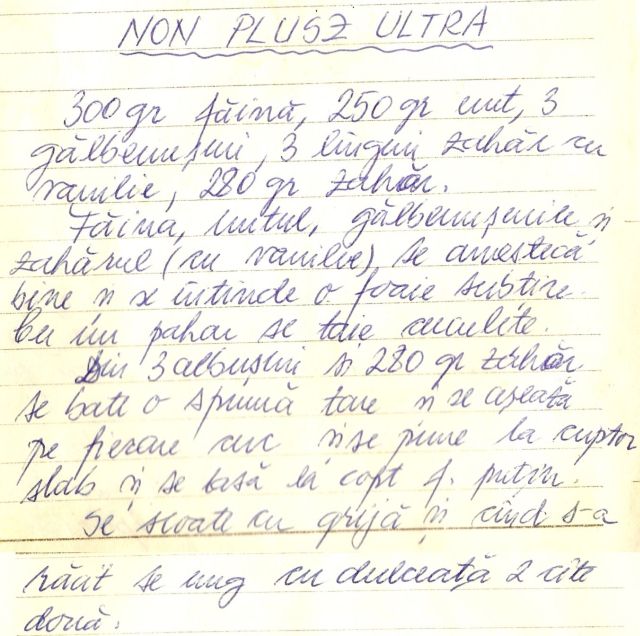 NON PLUSZ ULTRA
300 gr făină, 250 gr unt, 3
gălbenușuri, 3 linguri zahăr cu
vanilie, 280 gr zahăr.
Făina, untul, gălbenușurile și
zahărul (cu vanilie) se amestecă
bine și se întinde o foaie subțire.
Cu un pahar se taie cerculețe.
Din 3 albușuri și 280 gr zahăr
se bate o spumă tare și se așează
pe fiecare cerc și se pune la cuptor
slab și se lasă la copt f. puțin.
Se scoate cu grijă și cînd s-a
răcit se ung cu dulceață 2 cîte
două.